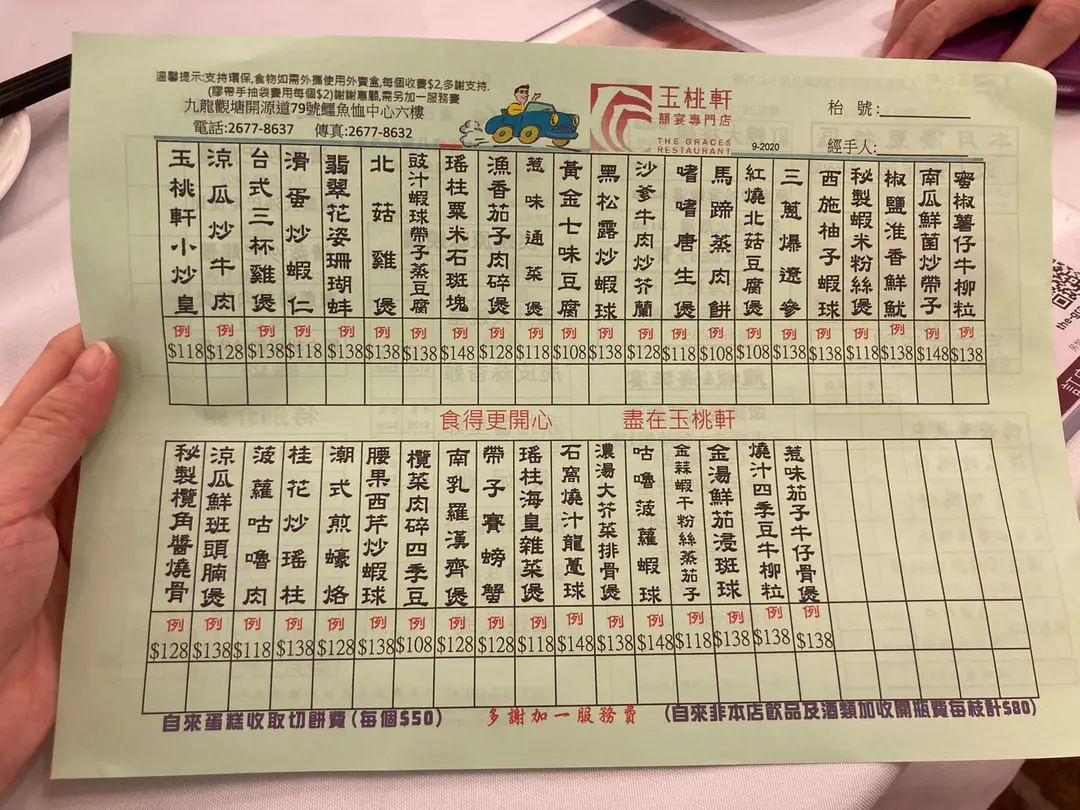 溫馨提示:支持環保,食物如需外攜使用外賣盒,每個收費$2,多謝支持.
(膠帶手抽袋費用每個$2)謝謝惠顧,需另加一服務費
九龍觀塘開源道79號鱷魚恤中心六樓
電話:2677-8637 傳真:2677-8632
玉桃軒
囍宴專門店
THE GRACES
RESTAURANT
9-2020
枱號:
經手人:
玉桃軒小炒皇 例 $118
涼瓜炒牛肉 例 $128
台式三杯雞煲 例 $138
滑蛋炒蝦仁 例 $118
翡翠花姿珊瑚蚌 例 $138
北菇雞煲 例 $138
豉汁蝦球帶子蒸豆腐 例 $138
瑤柱粟米石斑塊 例 $148
漁香茄子肉碎煲 例 $128
惹味通菜煲 例 $118
黃金七味豆腐 例 $108
黑松露炒蝦球 例 $138
沙爹牛肉炒芥蘭 例 $128
啫啫唐生煲 例 $118
馬蹄蒸肉餅 例 $108
紅燒北菇豆腐煲 例 $108
三蔥爆遼參 例 $138
西施柚子蝦球 例 $138
秘製蝦米粉絲煲 例 $118
椒鹽淮香鮮魷 例 $138
南瓜鮮菌炒帶子 例 $148
蜜椒薯仔牛柳粒 例 $138
食得更開心 盡在玉桃軒
秘製欖角醬燒骨 例 $128
涼瓜鮮班頭腩煲 例 $138
菠蘿咕嚕肉 例 $118
桂花炒瑤柱 例 $138
潮式煎蠔烙 例 $128
腰果西芹炒蝦球 例 $138
欖菜肉碎四季豆 例 $108
南乳羅漢齊煲 例 $128
帶子賽螃蟹 例 $128
瑤柱海皇雜菜煲 例 $118
石窩燒汁龍躉球 例 $148
濃湯大芥菜排骨煲 例 $138
咕嚕菠蘿蝦球 例 $148
金蒜蝦干粉絲蒸茄子 例 $118
金湯鮮茄浸斑球 例 $138
燒汁四季豆牛柳粒 例 $138
惹味茄子牛仔骨煲 例 $138
自來蛋糕收取切餅費(每個$50)
多謝加一服務費
(自來非本店飲品及酒類加收開瓶費每枝計$80)